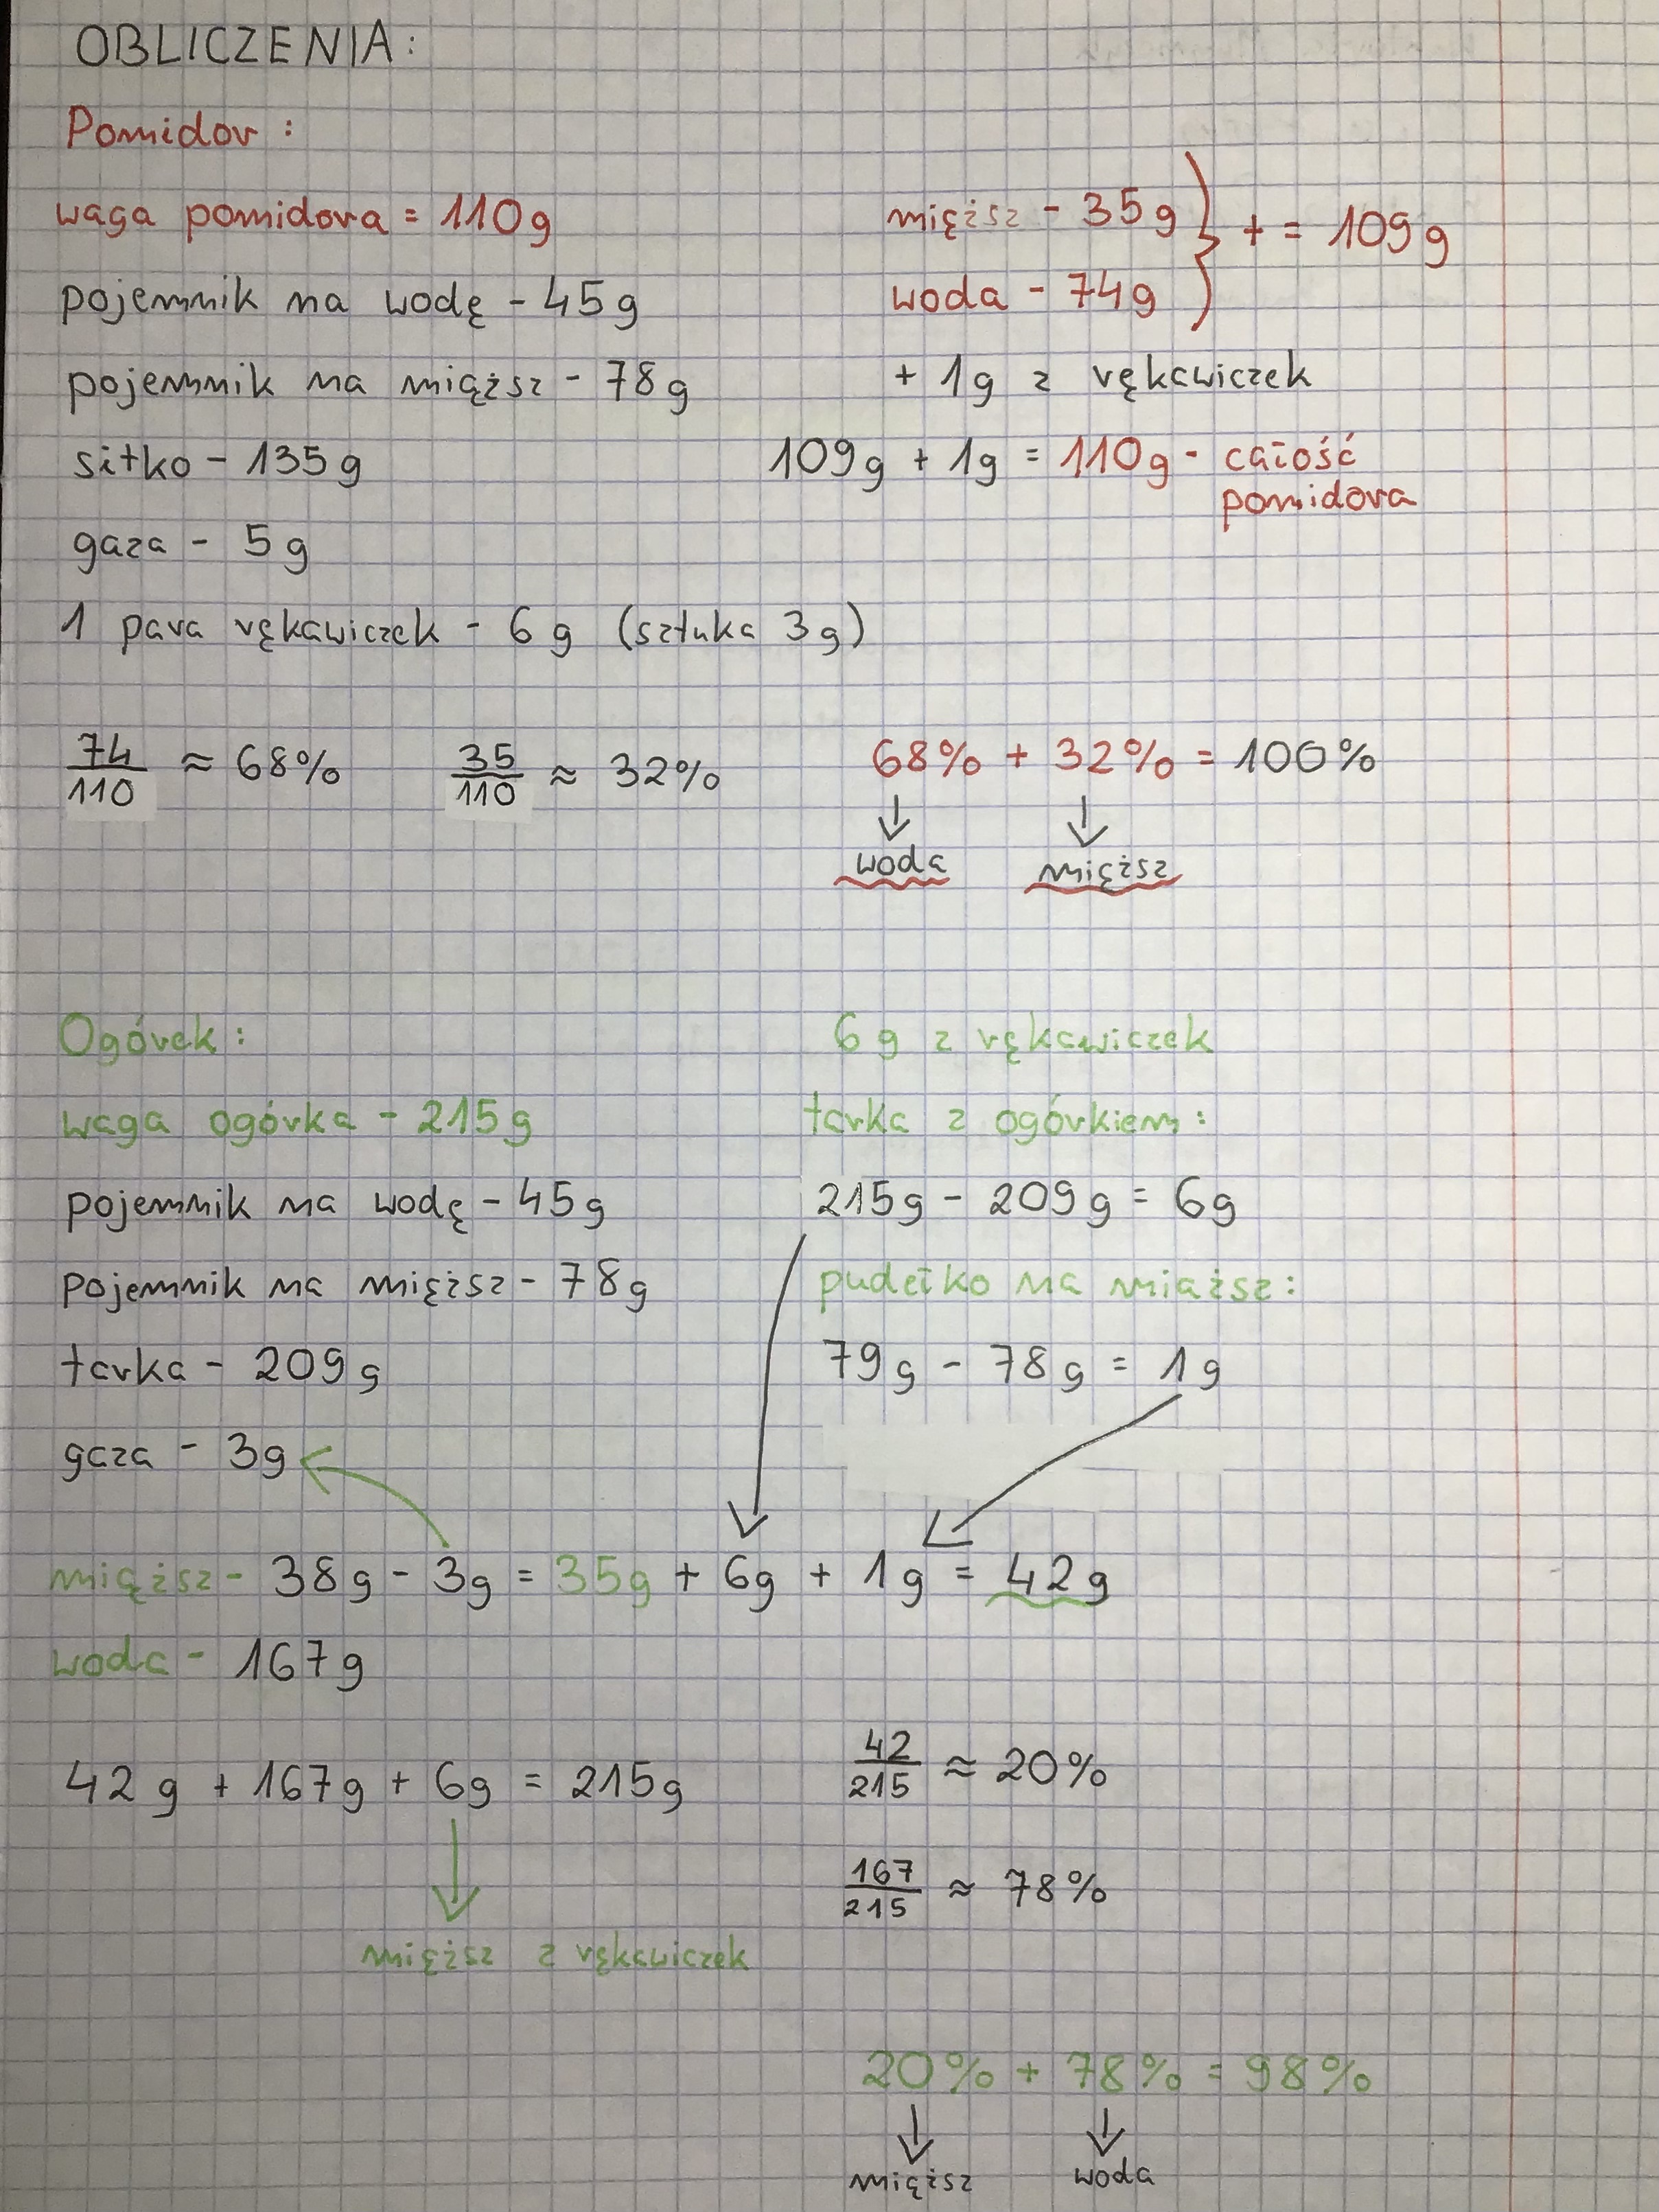 OBLICZENIA:
Pomidor:
waga pomidora = 110g
pojemnik na wodę - 45g
pojemnik na miąższ - 78g
sitko - 135g
gaza - 5g
1 para rękawiczek - 6g (sztuka 3g)
miąższ - 35g
woda - 74g
+ = 109g
+ 1g z rękawiczek
109g + 1g = 110g - całość
pomidora
74/110 ≈ 68%
35/110 ≈ 32%
68% + 32% = 100%
woda miąższ
Ogórek:
waga ogórka - 215g
pojemnik na wodę - 45g
pojemnik na miąższ - 78g
tarka - 209g
gaza - 3g
6g z rękawiczek
tarka z ogórkiem:
215g - 209g = 6g
pudełko na miąższ:
79g - 78g = 1g
miąższ - 38g - 3g = 35g + 6g + 1g = 42g
woda - 167g
42g + 167g + 6g = 215g
miąższ z rękawiczek
42/215 ≈ 20%
167/215 ≈ 78%
20% + 78% = 98%
miąższ woda